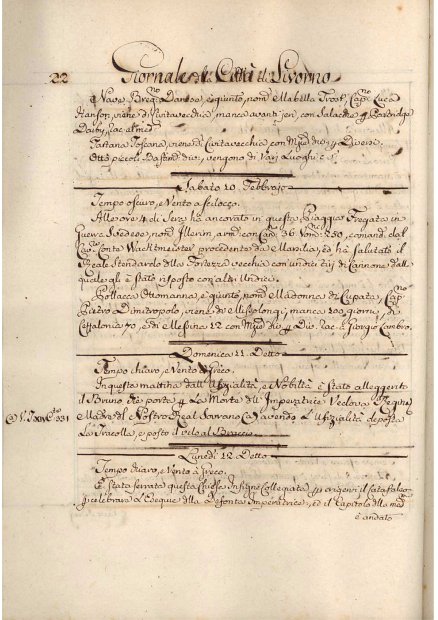 22 Giornale della Città di Livorno
Nave Bregno Danese, è giunto, nomo Mabella Trost, Capno Luca
Hansen, viene di Civitavecchia, manca avant' jeri, con Salacche
Tartana Toscana, viene di Civitavecchia con Mzie div: Diversi.
Otto piccoli Bastimti div: vengono di Varj Luoghi
Sabato 10. Febbrajo
Tempo oscuro, e Vento a Scilocco.
Alle ore 4. di Jeri ha ancorato in questa Piaggia Fregata in
Guerra Svedese, nom: Illerim, armo con Can: 36. Uom: 250, comand: dal
Capno Conte Wachtmeister procedente da Marsilia, ed ha salutato il
Reale Stendardo della Fortezza vecchia con undici tiri di Cannone dalla
quale gli è stato risposto con altri Undici.
Pollacca Ottomanna, è giunta, nomo Madonna di Cupata, Capno
Pietro Dimitropolo, viene di Missolongi, manca 200 giorni, di
Cefalonia 70, e di Messina 12 con Mzie div: Dio: Jac: e Giorgio Cambro.
Domenica 11. Detto
Tempo chiaro, e Vento a Greco.
In questa mattina dall' Ufizialità, e Nobiltà è stato alleggerito
il Bruno che porta La Morte dell' Imperatrice Vedova Regina
Madre del Nostro Real Sovrano avendo L'Ufizialità deposta
La Tracolla, e posto il velo al Braccio.
Lunedì 12. Detto
Tempo chiaro, e Vento a Greco.
È Stata serrata questa Chiesa Insigne Collegiata, p: erigervi il catafalco
p: celebrare l'Esequie della Defonta Imperatrice, ed il Capitolo della medma
è andato